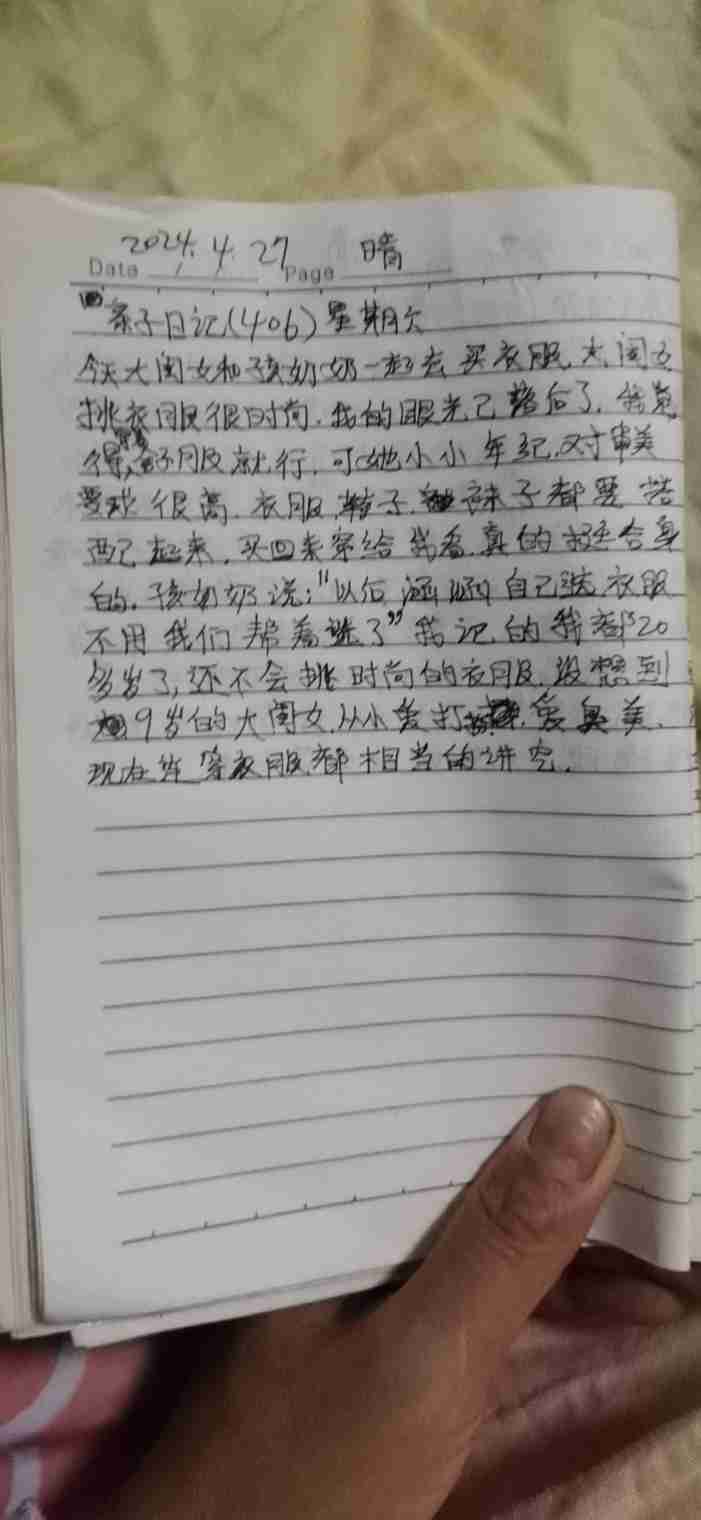 2024.4.27 晴
Date Page
亲子日记(406)星期六
今天大闺女和孩奶奶一起去买衣服,大闺女
挑衣服很时尚.我的眼光己落后了,我觉
得,舒服就行,可她小小年纪,对审美
要求很高.衣服,鞋子,袜子都要搭
配起来,买回来穿给我看,真的挺合身
的.孩奶奶说:"以后涵涵自己挑衣服
不用我们帮着选了"我记的我都20
多岁了,还不会挑时尚的衣服.没想到
9岁的大闺女,从小爱打扮.爱臭美.
现在穿衣服都相当的讲究.